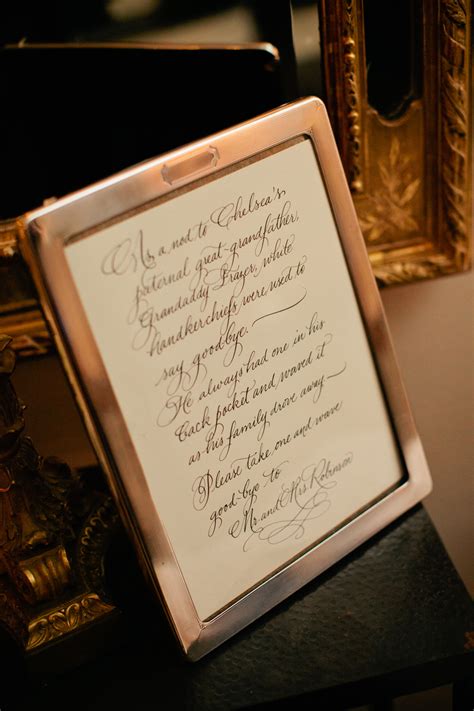 As a nod to Chelsea's
paternal great-grandfather,
Grandaddy Prayer, white
handkerchiefs were used to
say goodbye.
He always had one in his
back pocket and waved it
as his family drove away—
Please take one and wave
good-bye to
Mr. and Mrs Robinson